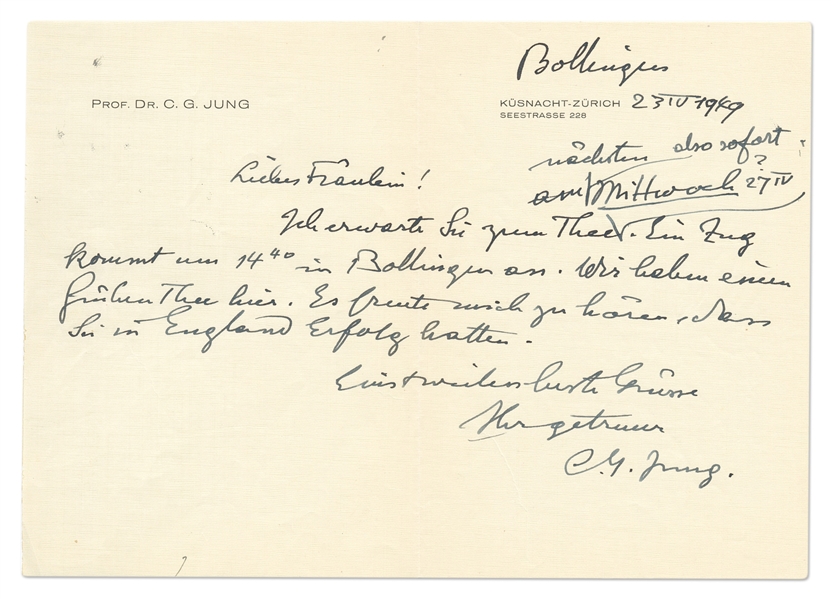 Bollingen
PROF. DR. C. G. JUNG
KÜSNACHT-ZÜRICH 23 IV 1949
SEESTRASSE 228
nächsten also sofort
am Mittwoch ? 27 IV
Liebes Fräulein!
Ich erwarte Sie zum Thee. Ein Zug
kommt um 14⁴⁰ in Bollingen an. Wir haben einen
frühen Thee hier. Es freute mich zu hören, dass
Sie in England Erfolg hatten.
Einstweilen beste Grüsse
Ihr getreuer
C. G. Jung.